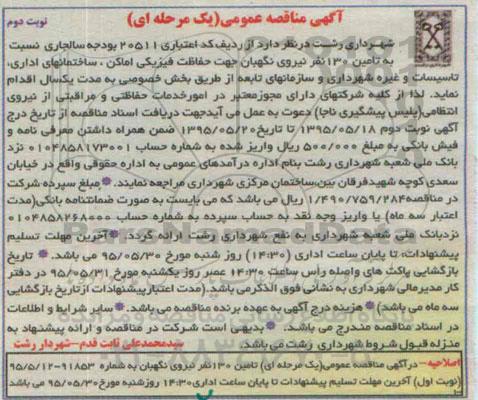 آگهی مناقصه عمومی(یک مرحله ای)
نوبت دوم
شهرداری رشت درنظر دارد از ردیف کد اعتباری ۲۰۵۱۱ بودجه سالجاری نسبت
به تامین ۱۳۰نفر نیروی نگهبان جهت حفاظت فیزیکی اماکن ، ساختمانهای اداری،
تاسیسات و غیره شهرداری و سازمانهای تابعه از طریق بخش خصوصی به مدت یکسال اقدام
نماید. لذا از کلیه شرکتهای دارای مجوزمعتبر در امورخدمات حفاظتی و مراقبتی از نیروی
انتظامی(پلیس پیشگیری ناجا) دعوت به عمل می آیدجهت دریافت اسناد مناقصه از تاریخ درج
آگهی نوبت دوم ۱۳۹۵/۰۵/۱۸ تا تاریخ۱۳۹۵/۰۵/۲۰ ضمن همراه داشتن معرفی نامه و
فیش بانکی به مبلغ ۵۰۰/۰۰۰ ریال واریز شده به شماره حساب ۰۱۰۴۸۵۸۱۷۳۰۰۱ نزد
بانک ملی شعبه شهرداری رشت بنام اداره درآمدهای عمومی به اداره حقوقی واقع در خیابان
سعدی کوچه شهیدفرقان بین،ساختمان مرکزی شهرداری مراجعه نمایند. * مبلغ سپرده شرکت
در مناقصه۱/۴۹۰/۷۵۹/۲۸۴ ریال می باشد که می بایست به صورت ضمانتنامه بانکی(مدت
اعتبار سه ماه) یا واریز وجه نقد به حساب سپرده به شماره حساب ۰۱۰۴۸۵۸۲۶۸۰۰۰
نزدبانک ملی شعبه شهرداری به نفع شهرداری رشت ارائه گردد. * آخرین مهلت تسلیم
پیشنهادات، تا پایان ساعت اداری (۱۴:۳۰) روز شنبه مورخ ۹۵/۰۵/۳۰ می باشد. * تاریخ
بازگشایی پاکت های واصله رأس ساعت ۱۴:۳۰ عصر روز یکشنبه مورخ ۹۵/۰۵/۳۱ در دفتر
کار مدیرمالی شهرداری به نشانی فوق الذکرمی باشد.(مدت اعتبارپیشنهادات ازتاریخ بازگشایی
سه ماه می باشد) * هزینه درج آگهی به عهده برنده مناقصه می باشد. * سایر شرایط و اطلاعات
در اسناد مناقصه مندرج می باشد. * بدیهی است شرکت در مناقصه و ارائه پیشنهاد به
منزله قبول شروط شهرداری رشت می باشد.
سیدمحمدعلی ثابت قدم–شهردار رشت
اصلاحیه– درآگهی مناقصه عمومی(یک مرحله ای) تامین ۱۳۰نفر نیروی نگهبان به شماره ۹۱۸۵۳–۹۵/۵/۱۲
(نوبت اول) آخرین مهلت تسلیم پیشنهادات تا پایان ساعت اداری۱۴:۳۰ روزشنبه مورخ۹۵/۰۵/۳۰ می باشد